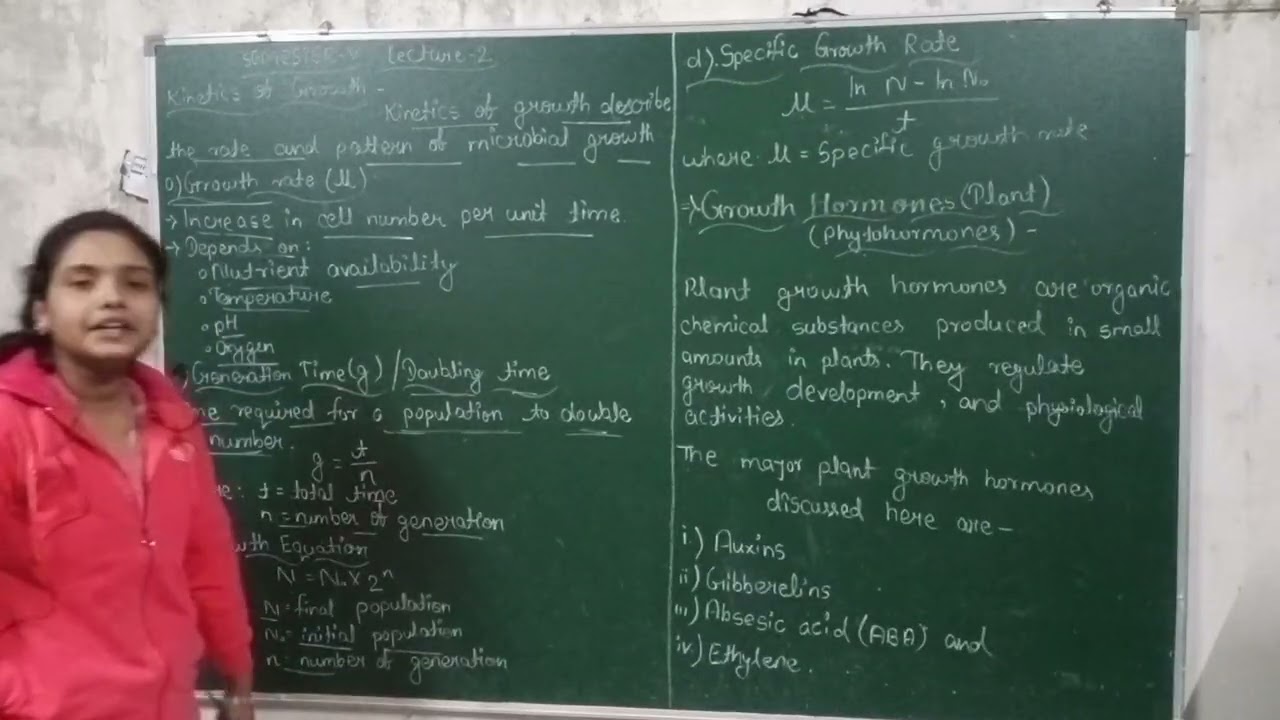 SEMESTER-V Lecture-2
Kinetics of Growth -
Kinetics of growth describe
the rate and pattern of microbial growth
a) Growth rate (μ)
→ Increase in cell number per unit time.
→ Depends on:
o Nutrient availability
o Temperature
o pH
o Oxygen
Generation Time(g) / Doubling time
required for a population to double
number.
g = t/n
t = total time
n = number of generation
Equation
N = N₀ x 2ⁿ
N = final population
N₀ = initial population
n = number of generation
d). Specific Growth Rate
μ = ln N - ln N₀ / t
where. μ = Specific growth rate
⇒ Growth Hormones (Plant)
(Phytohormones) -
Plant growth hormones are organic
chemical substances produced in small
amounts in plants. They regulate
growth development, and physiological
activities.
The major plant growth hormones
discussed here are -
i.) Auxins
ii) Gibberelins
iii) Absesic acid (ABA) and
iv) Ethylene.